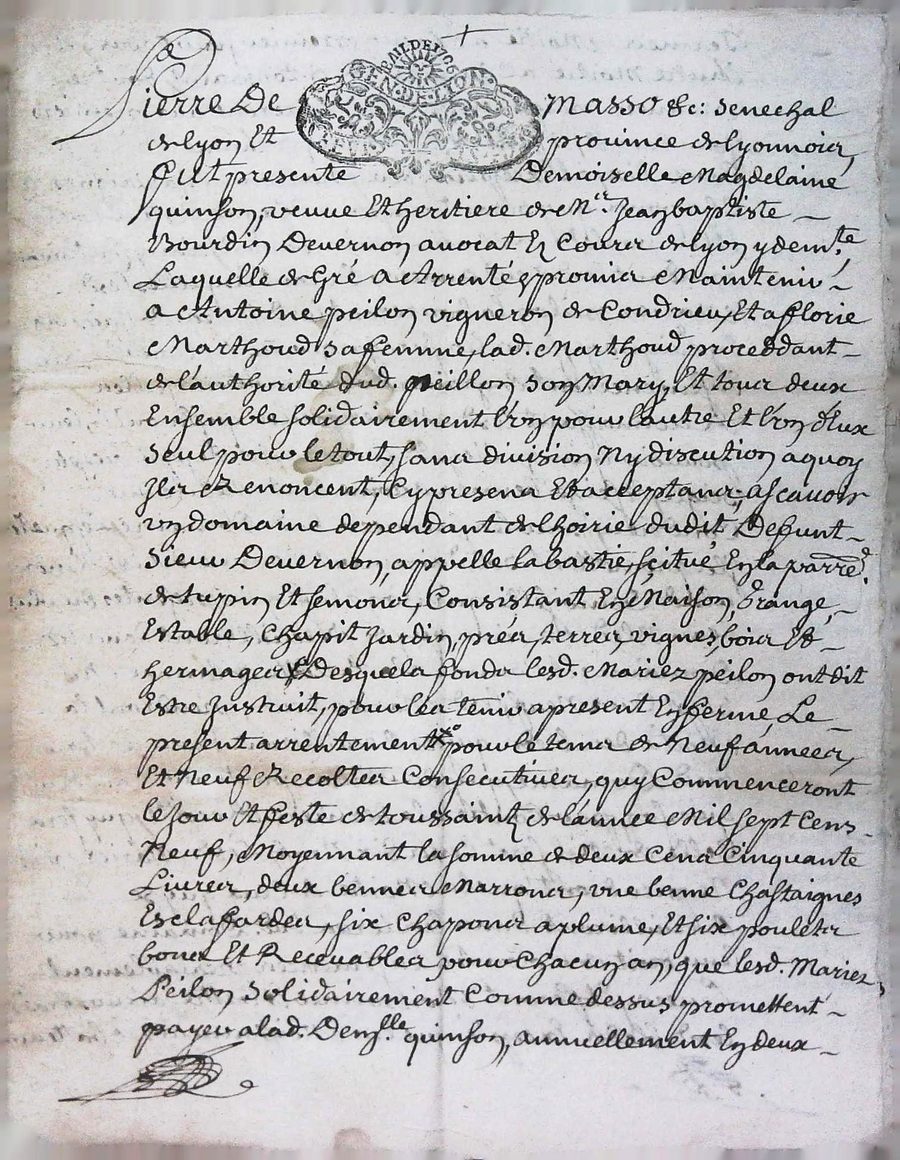 BAIL DE 1706
GEN·DE·LYON·
Pierre De Masso &c: Senechal
de lyon Et province de lyonnois,
fut presente Demoiselle Magdelaine
quinson, veuve Et heritiere de Mr. Jean baptiste
Bourdin Devernon avocat En Cours de lyon y demte.
Laquelle de Gré a Arrenté & promis Maintenir
a Antoine peilon vigneron de Condrieu, Et a florie
Marthoud sa femme, lad. Marthoud proceddant
de lauthorité dud. peillon son Mary, Et tous deux
Ensemble solidairement l'on pour lautre Et l'on d'Eux
seul pour le tout, sans division Ny discution a quoy
Ils Renoncent, Cy presens Et acceptans; ascavoir
un domaine dependant de lhoirie dudit Deffunt
sieur Devernon, appelle la bastie, scitué En la parre.
de tupin Et semons, Consistant En Maison, Grange,
Estable, Chapit Jardin, prés, terres, vignes, bois Et
hermages Desquels fonds lesd. Mariez peilon ont dit
Estre Instruit, pour les tenir a present En ferme, Le
present arrentement pour le tems de Neuf années,
Et Neuf Recoltes Consecutives, quy Commenceront
le Jour Et feste de toussaint de lannée Mil sept Cens
Neuf, Moyennant la somme de deux Cens Cinquante
Livres, deux bennes Marrons, une benne Chastaignes
Esclaffardes, six Chapons a plume, Et six poulets
bons Et Recevables pour Chacun an, que lesd. Mariez
Peilon solidairement Comme dessus promettent
payer a lad. Demslle. quinson, annuellement En deux